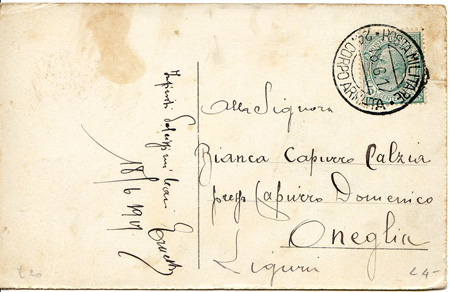 Infiniti dolcissimi baci
18/6 1917
POSTA MILITARE
CORPO ARMATA
Alla Signora
Bianca Capurro Calzia
presso Capurro Domenico
Oneglia
Liguria
£20
£4-